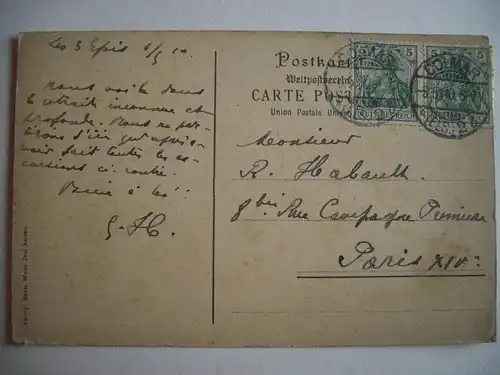 Les 3 Epis 6/5 10
Nous voilà dans
la retraite inconnue et
profonde. Nous ne par-
tirons d'ici qu'après
avoir fait toutes les ex-
cursions ci contre.
à
G. H.
Postkarte
Weltpostverein
CARTE POSTALE
Union Postale Univer
5 5
DEUTSCHES REICH
COLMAR
COLMAR
Monsieur
R. Habault
8 bis Rue Campagne Première
Paris XIV
Verlag